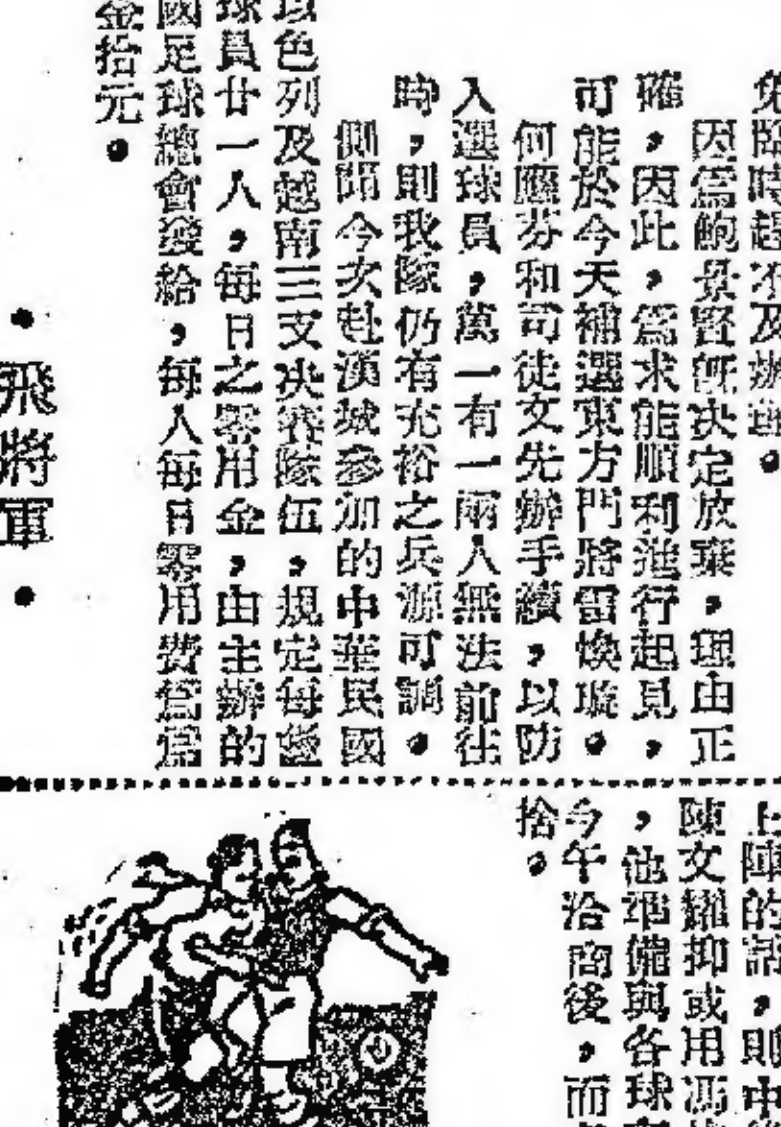 免臨時趕不及辦理。
因為鮑景賢旣决定放棄，理由正
確，因此，為求能順利進行起見，
可能於今天補選東方門將雷煥璇。
何應芬和司徒文先辦手續，以防
入選球員，萬一有一兩人無法前往
時，則我隊仍有充裕之兵源可調。
側聞今次赴漢城參加的中華民國
以色列及越南三支决賽隊伍，規定每隊
球員廿一人，每日之零用金，由主辦的
國足球總會發給，每人每日零用費為
金拾元。
•飛將軍•
上陣的話，則中
陳文耀抑或用馮
，他準備與各球
今午洽商後，而
捨。